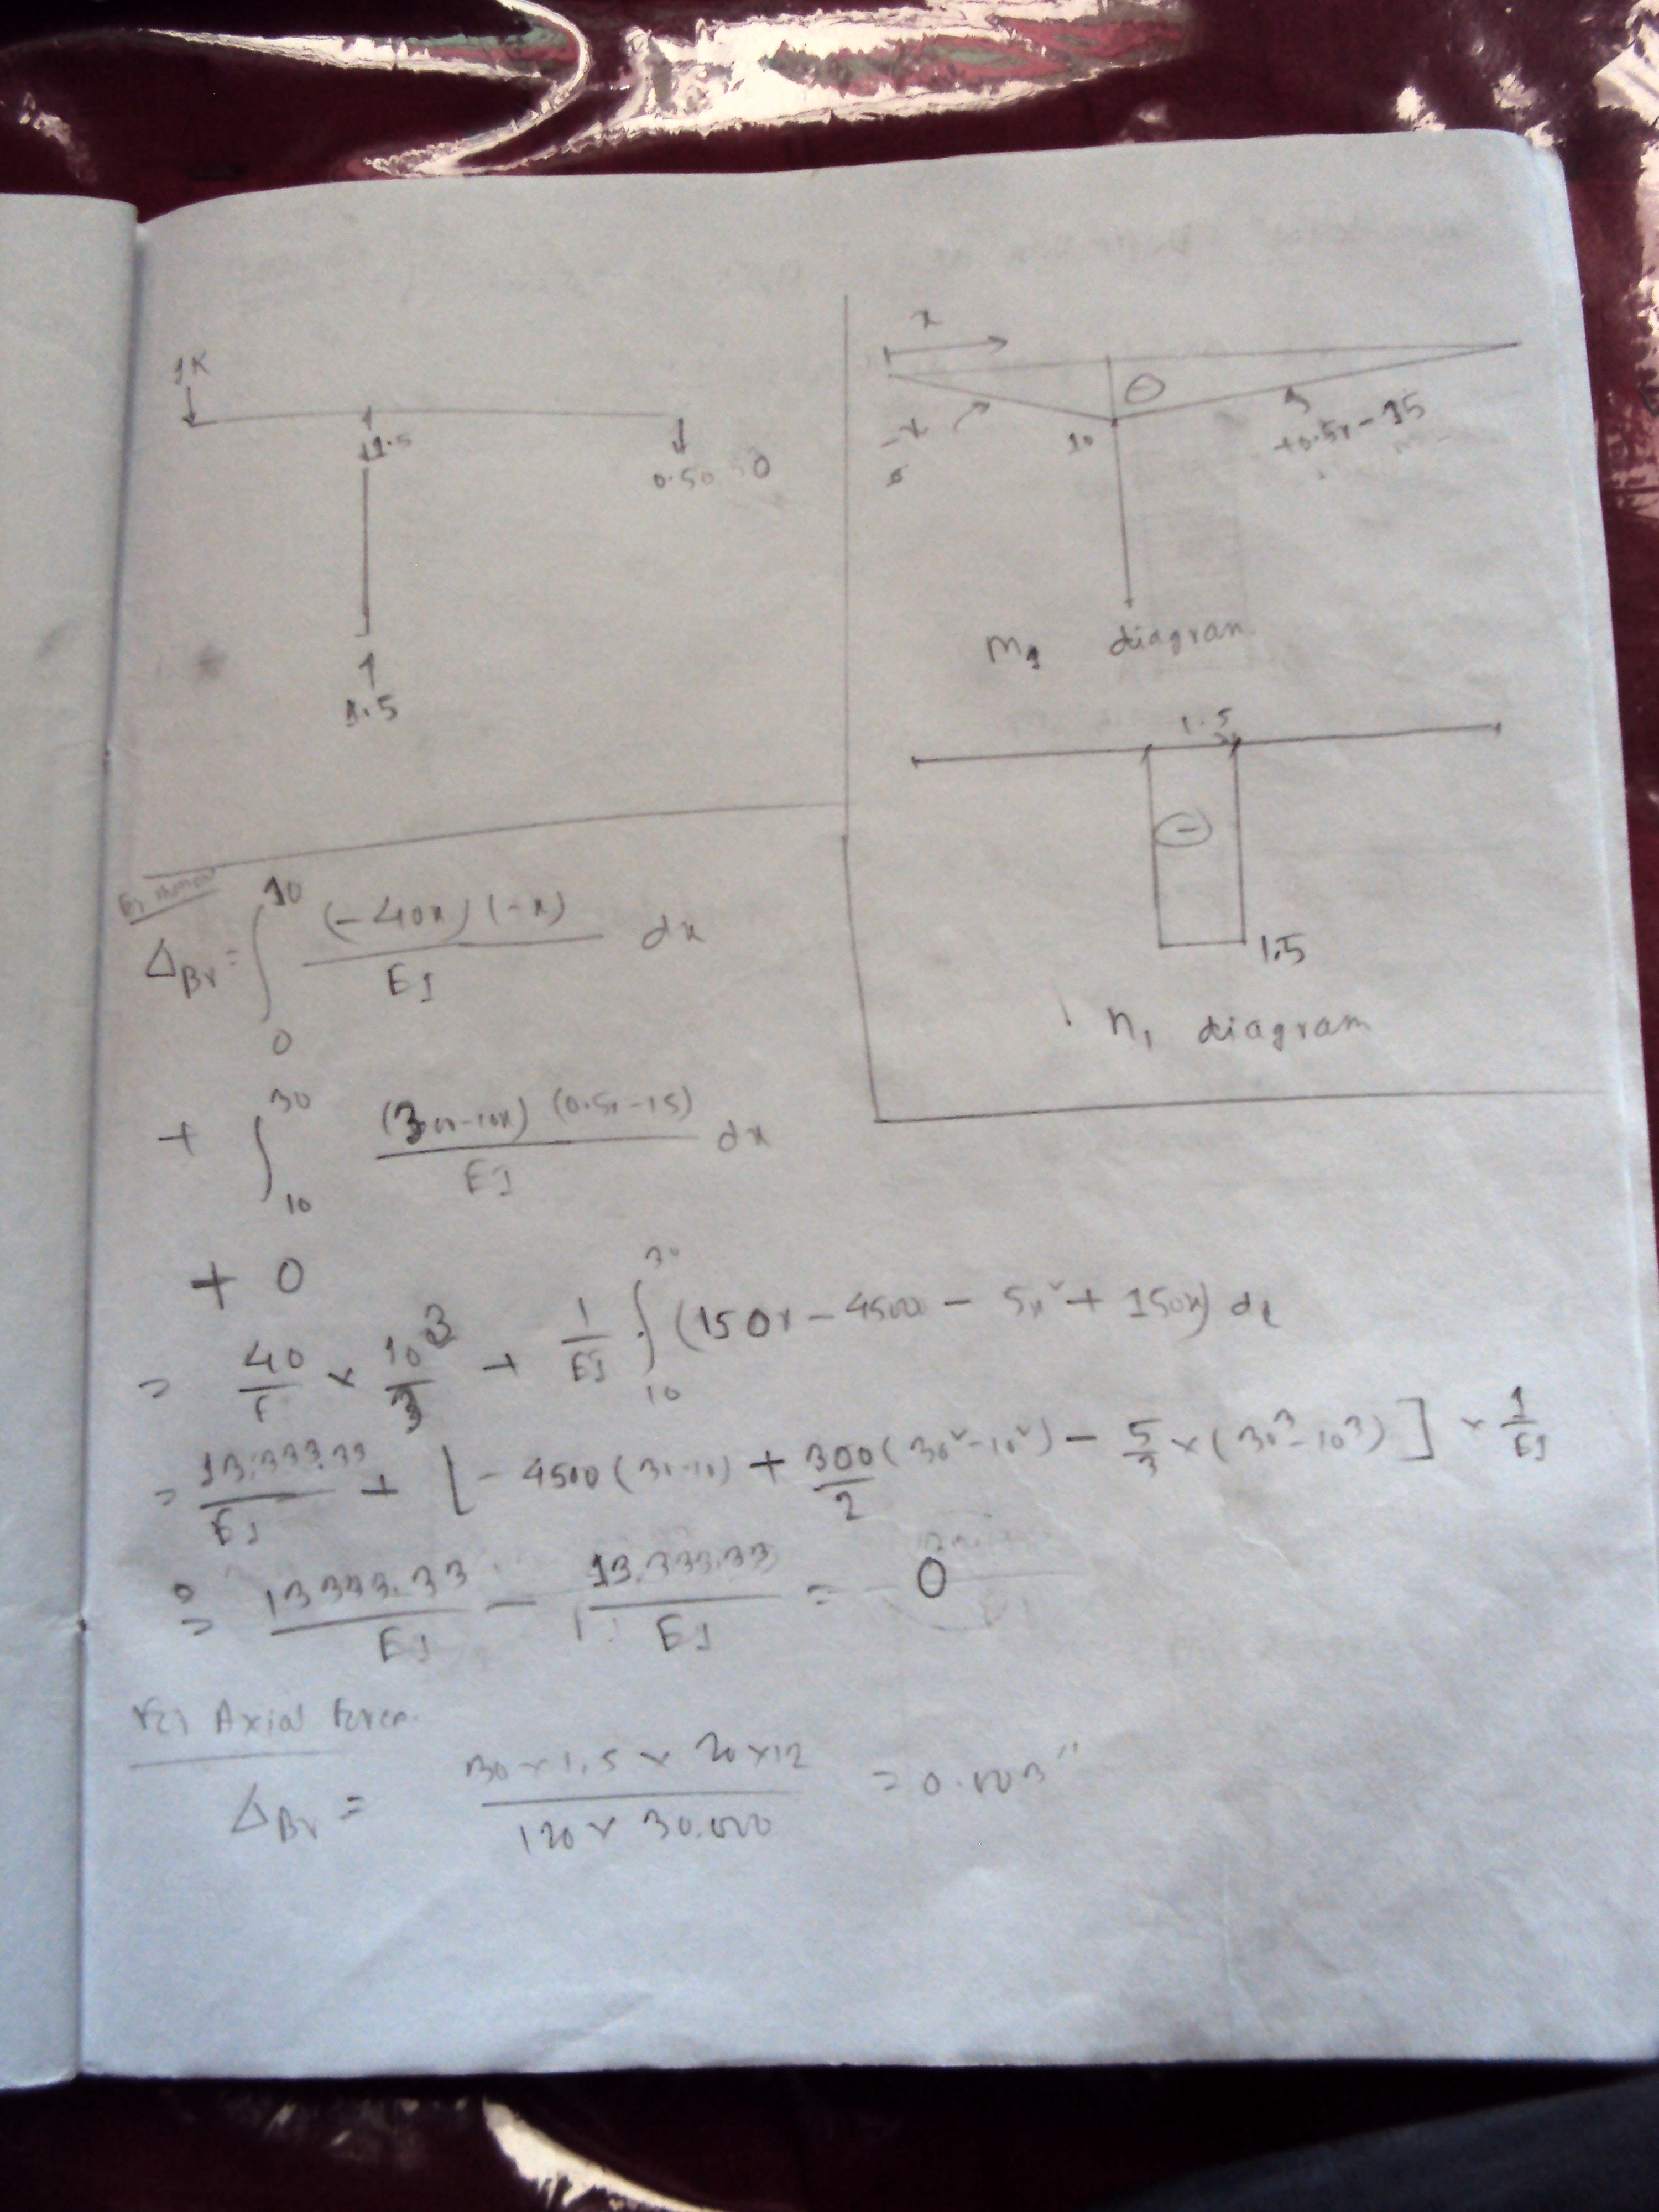 1K
1.5
0.50
1.5
x
-x
10
+0.5x-15
m1 diagram
1.5
1.5
n1 diagram
ΔBv = ∫ 0 10 (-40x)(-x) / EI dx
+ ∫ 10 30 (300-10x) (0.5x-15) / EI dx
+ 0
= 40/1 × 10³/3 + 1/EI ∫ 10 30 (150x - 4500 - 5x² + 150x) dx
= 13,333.33/EI + [-4500(30-10) + 300/2 (30²-10²) - 5/3 × (30³-10³)] × 1/EI
= 13333.33/EI - 13,333.33/EI = 0
For Axial Force.
ΔBv = 30×1.5×20×12 / 120×30,000 = 0.003"